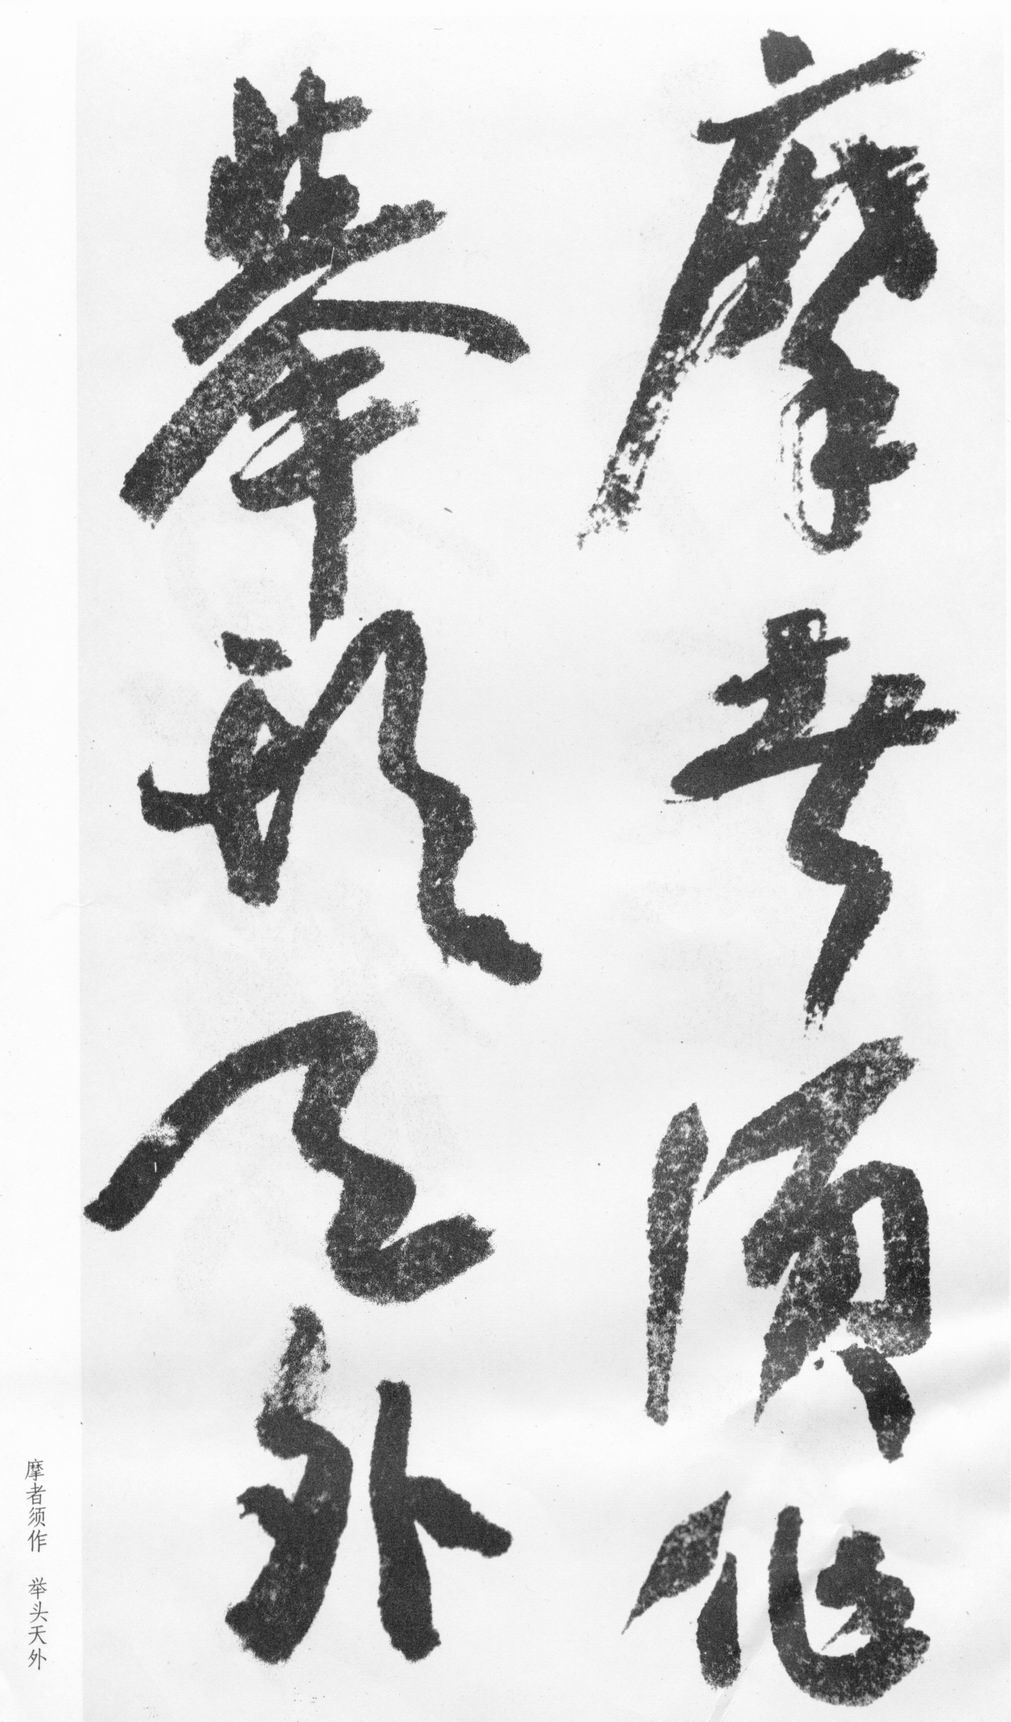 摩者須作
舉頭天外
摩者须作 举头天外